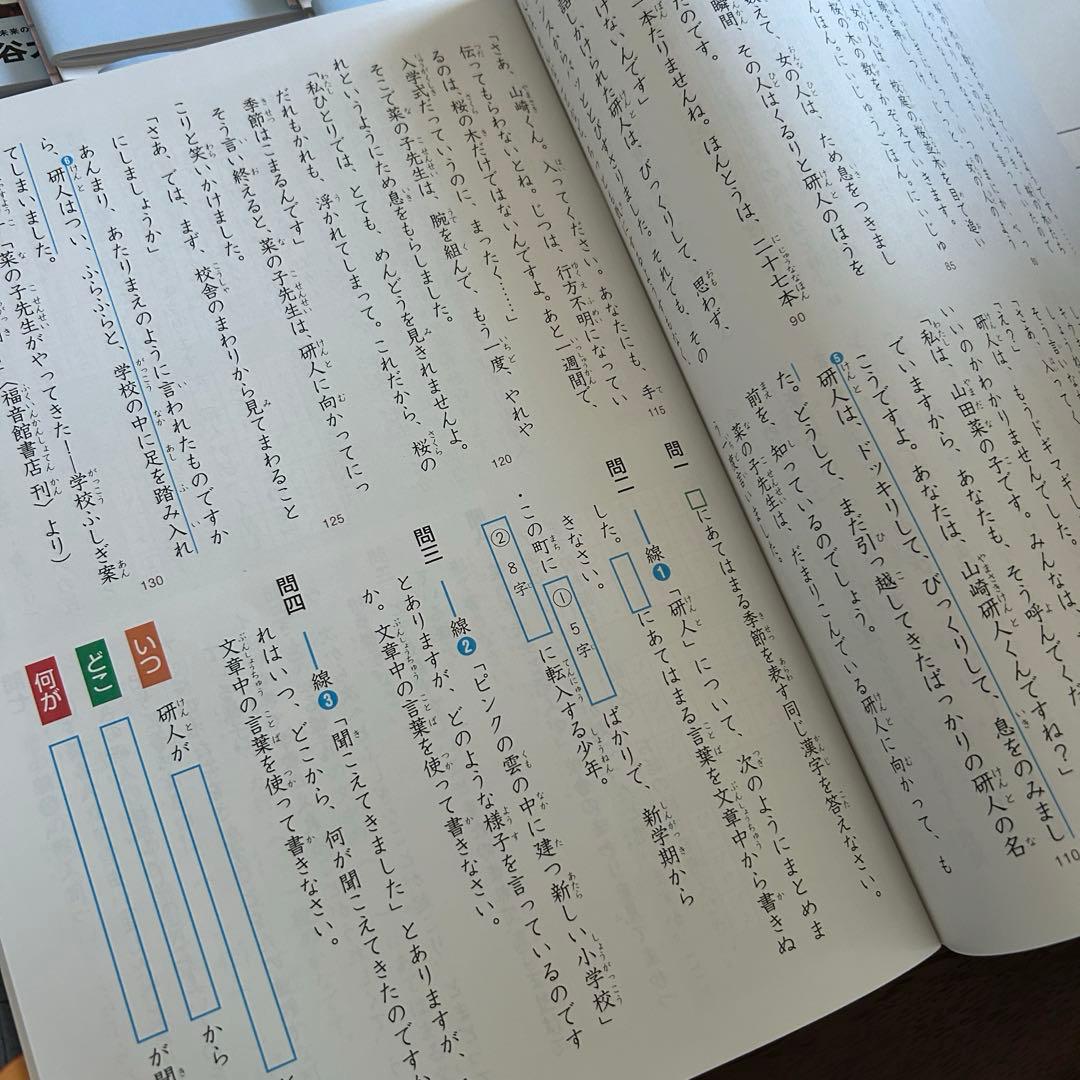 数えて、女の人は、ため息をつきまし
瞬間、その人はくるりと研人のほうを
二本たりませんね。ほんとうは、二十七本
90
けないんです」
話しかけられた研人は、びっくりして、思わず、
85
「え？」
研人は、もうドギマギしてしまって、
いいのかわかりませんでした。みんなは、
「私は、山田菜の子です。あなたも、そう呼んでくだ
ていますから。あなたは、山崎研人くんですね？」
❺研人は、ドッキリして、びっくりして、息をのみまし
110
た。どうして、まだ引っ越してきたばっかりの研人の名
前を、知っているのでしょう。
菜の子先生は、だまりこんでいる研人に向かって、も
う一度言いました。
「さあ、山崎くん。入ってください。あなたにも、手
115
伝ってもらわないとね。じつは、行方不明になってい
るのは、桜の木だけではないんですよ。あと一週間で、
入学式だっていうのに、まったく……」
そこで菜の子先生は、腕を組んで、もう一度、やれや
れというようにため息をもらしました。
120
「私ひとりでは、とても、めんどうを見きれませんよ。
だれもかれも、浮かれてしまって。これだから、桜の
季節はこまるんです」
そう言い終えると、菜の子先生は、研人に向かってにっ
こりと笑いかけました。
125
「さあ、では、まず、校舎のまわりから見てまわること
にしましょうか」
あんまり、あたりまえのように言われたものですか
ら、❻研人はつい、ふらふらと、学校の中に足を踏み入れ
てしまいました。
130
「菜の子先生がやってきた──学校ふしぎ案
〈福音館書店 刊〉より）
問一 □にあてはまる季節を表す同じ漢字を答えなさい。
問二 ──線❶「研人」について、次のようにまとめま
した。□にあてはまる言葉を文章中から書きぬ
きなさい。
・この町に ① 5字 ばかりで、新学期から
② 8字 に転入する少年。
問三 ──線❷「ピンクの雲の中に建つ新しい小学校」
とありますが、どのような様子を言っているのです
か。文章中の言葉を使って書きなさい。
問四 ──線❸「聞こえてきました」とありますが、
れはいつ、どこから、何が聞こえてきたのですか
文章中の言葉を使って書きなさい。
いつ 研人が
どこ から
何が が聞